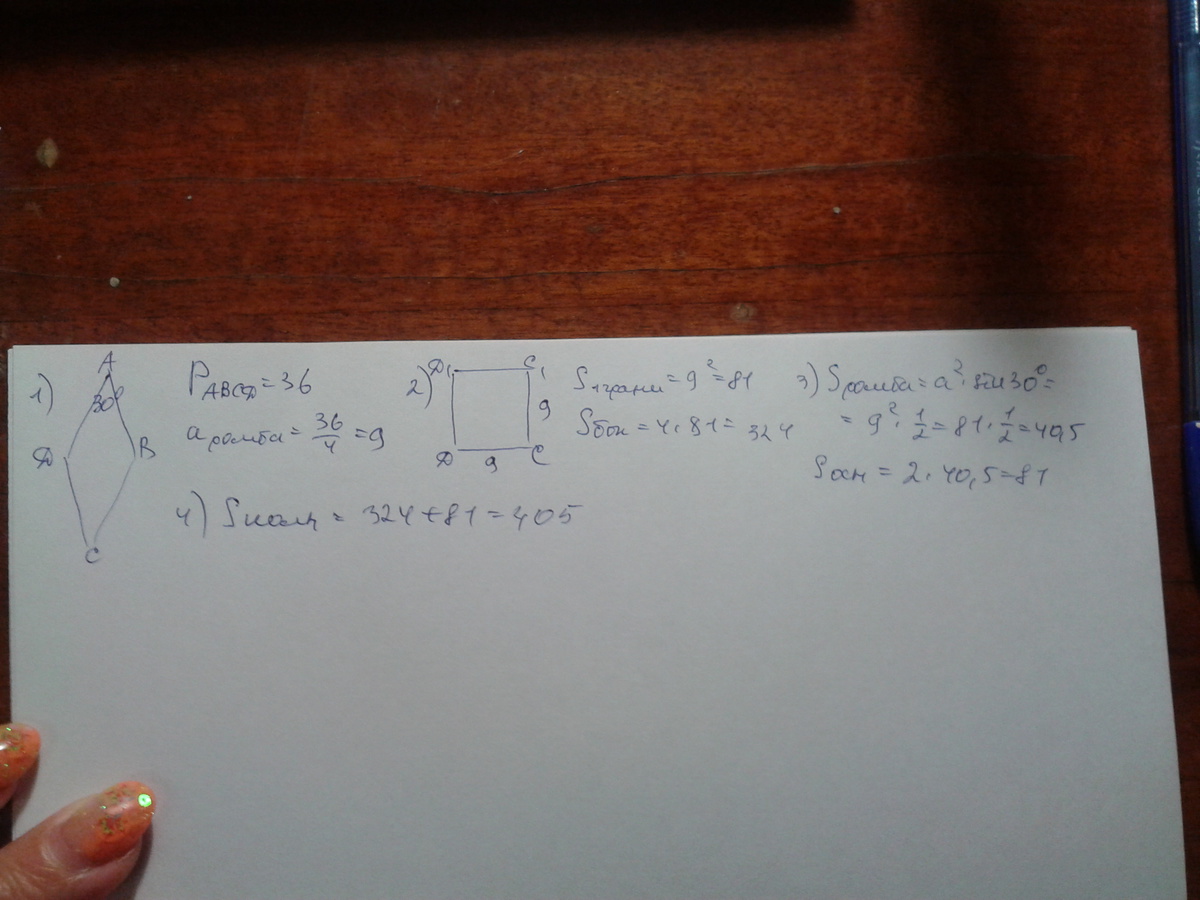 1)
A
30°
D
B
C
P ABCD = 36
a ромба = 36/4 = 9
2)
D₁ C₁
9
D 9 C
S 1 грани = 9² = 81
Sбок = 4 · 81 = 324
3) Sромба = a² · sin30° =
= 9² · 1/2 = 81 · 1/2 = 40,5
Sосн = 2 · 40,5 = 81
4) Sполн = 324 + 81 = 405